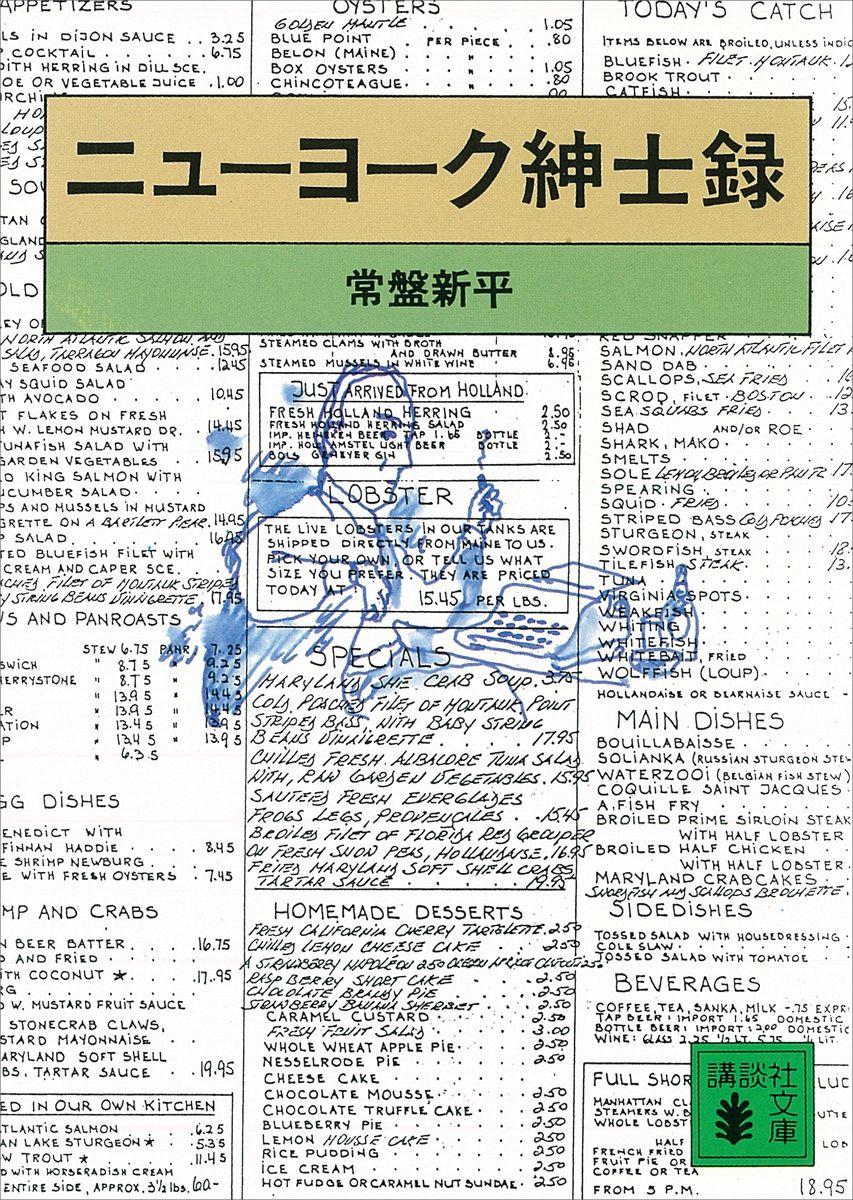 APPETIZERS
LS IN DIJON SAUCE . . 3.25
COCKTAIL . . . . . 6.75
DITH HERRING IN DILL SCE.
OE OR VEGETABLE JUICE . 1.00
OYSTERS
GOLDEN MANTLE . . . 1.05
BLUE POINT . PER PIECE . .80
BELON (MAINE) "
BOX OYSTERS " 1.05
CHINCOTEAGUE . " .80
TODAY'S CATCH
ITEMS BELOW ARE BROILED, UNLESS INDIC
BLUEFISH . FILET . MONTAUK . 1
BROOK TROUT
CATFISH
ニューヨーク紳士録
常盤新平
NORTH ATLANTIC SALMON AND
TARRAGON MAYONNAISE . 15.95
SEAFOOD SALAD . . . 12.45
AY SQUID SALAD
TH AVOCADO . . . 10.45
T FLAKES ON FRESH
H W. LEMON MUSTARD DR. . 14.45
UNAFISH SALAD WITH
GARDEN VEGETABLES . . 15.95
D KING SALMON WITH
UCUMBER SALAD
PS AND MUSSELS IN MUSTARD
GRETTE ON A BARTLETT PEAR . 14.95
P SALAD . . . . . 16.95
TED BLUEFISH FILET WITH
CREAM AND CAPER SCE.
ACHED FILET OF MONTAUK STRIPED
Y STRING BEANS VINAIGRETTE . 17.95
S AND PANROASTS
STEW 6.75 PANR. 7.25
SWICH " 8.75 " 9.25
HERRYSTONE " 8.75 " 9.25
" 13.95 " 14.45
R " 13.95 " 14.45
ATION " 13.45 " 13.95
P " 13.45 " 13.95
" 6.35
GG DISHES
ENEDICT WITH
FINNAN HADDIE . . . 8.45
E SHRIMP NEWBURG .
E WITH FRESH OYSTERS . 7.45
MP AND CRABS
N BEER BATTER . . . . 16.75
D AND FRIED
TH COCONUT ★ . . . 17.95
RG
W. MUSTARD FRUIT SAUCE
STONECRAB CLAWS,
STARD MAYONNAISE
ARYLAND SOFT SHELL
BS, TARTAR SAUCE . . 19.95
ED IN OUR OWN KITCHEN
TLANTIC SALMON 6.25
AN LAKE STURGEON ★ . . 5.35
W TROUT ★ . . . . 11.45
D WITH HORSERADISH CREAM
ENTIRE SIDE, APPROX. 3½ lbs. 60-
STEAMED CLAMS WITH BROTH
AND DRAWN BUTTER 8.95
STEAMED MUSSELS IN WHITE WINE 6.95
JUST ARRIVED FROM HOLLAND
FRESH HOLLAND HERRING 2.50
FRESH HOLLAND HERRING SALAD 2.50
IMP. HEINEKEN BEER TAP 1.65 BOTTLE 2.-
IMP. HOLL. AMSTEL LIGHT BEER BOTTLE 2.-
BOLS GENEVER GIN 2.50
LOBSTER
THE LIVE LOBSTERS IN OUR TANKS ARE
SHIPPED DIRECTLY FROM MAINE TO US.
PICK YOUR OWN, OR TELL US WHAT
SIZE YOU PREFER. THEY ARE PRICED
TODAY AT: 15.45 PER LBS.
SPECIALS
MARYLAND SHE CRAB SOUP. 3.75
COLD POACHED FILET OF MONTAUK POINT
STRIPED BASS, WITH BABY STRING
BEANS VINAIGRETTE . . . 17.95
CHILLED FRESH ALBACORE TUNA SALAD
WITH RAW GARDEN VEGETABLES. 15.95
SAUTEED FRESH EVERGLADES
FROGS LEGS, PROVENÇALES . . 15.45
BROILED FILET OF FLORIDA RED GROUPER
ON FRESH SNOW PEAS, HOLLANDAISE. 16.95
FRIED MARYLAND SOFT SHELL CRABS
TARTAR SAUCE 19.95
HOMEMADE DESSERTS
FRESH CALIFORNIA CHERRY TARTLETTE. 2.50
CHILLED LEMON CHEESE CAKE . 2.50
RASPBERRY SHORT CAKE . . 2.50
CHOCOLATE BRANDY PIE . . 2.50
CARAMEL CUSTARD . . . 2.50
FRESH FRUIT SALAD . . 3.00
WHOLE WHEAT APPLE PIE . . 2.50
NESSELRODE PIE . . . 2.50
CHEESE CAKE
CHOCOLATE MOUSSE . . . 2.50
CHOCOLATE TRUFFLE CAKE . . 2.50
BLUEBERRY PIE . . . 2.50
LEMON MOUSSE CAKE . . . 2.50
RICE PUDDING . . . 2.50
ICE CREAM . . . . 2.50
HOT FUDGE OR CARAMEL NUT SUNDAE . 2.50
RED SNAPPER
SALMON, NORTH ATLANTIC FILET
SAND DAB
SCALLOPS, SEA FRIED
SCROD, FILET . BOSTON
SEA SQUABS FRIED
SHAD AND/OR ROE
SHARK, MAKO
SMELTS
SOLE
SPEARING
SQUID . FRIED
STRIPED BASS COLD POACHED 17
STURGEON, STEAK
SWORDFISH, STEAK 18
TILEFISH STEAK 13
TUNA
VIRGINIA SPOTS
WEAKFISH
WHITING
WHITEFISH
WHITEBAIT, FRIED
WOLFFISH (LOUP)
HOLLANDAISE OR BEARNAISE SAUCE -
MAIN DISHES
BOUILLABAISSE
SOLIANKA (RUSSIAN STURGEON STEW
WATERZOOI (BELGIAN FISH STEW)
COQUILLE SAINT JACQUES
A. FISH FRY
BROILED PRIME SIRLOIN STEAK
WITH HALF LOBSTER
BROILED HALF CHICKEN
WITH HALF LOBSTER
MARYLAND CRABCAKES
SWORDFISH AND SCALLOPS BROCHETTE
SIDEDISHES
TOSSED SALAD WITH HOUSEDRESSING
COLE SLAW
TOSSED SALAD WITH TOMATOE
BEVERAGES
COFFEE, TEA, SANKA, MILK -.75 EXPR
TAP BEER: IMPORT 1.65 DOMESTIC
BOTTLE BEER: IMPORT: 2.00 DOMESTIC
WINE: GLASS 2.25 ½ LT. 5.75 ½ LIT.
FULL SHOR
MANHATTAN CL
STEAMERS W. B
WHOLE LOBST
HALF
FRENCH FRIED
FRUIT PIE OR
COFFEE OR TEA
FROM 5 P.M. 18.95
講談社
文庫